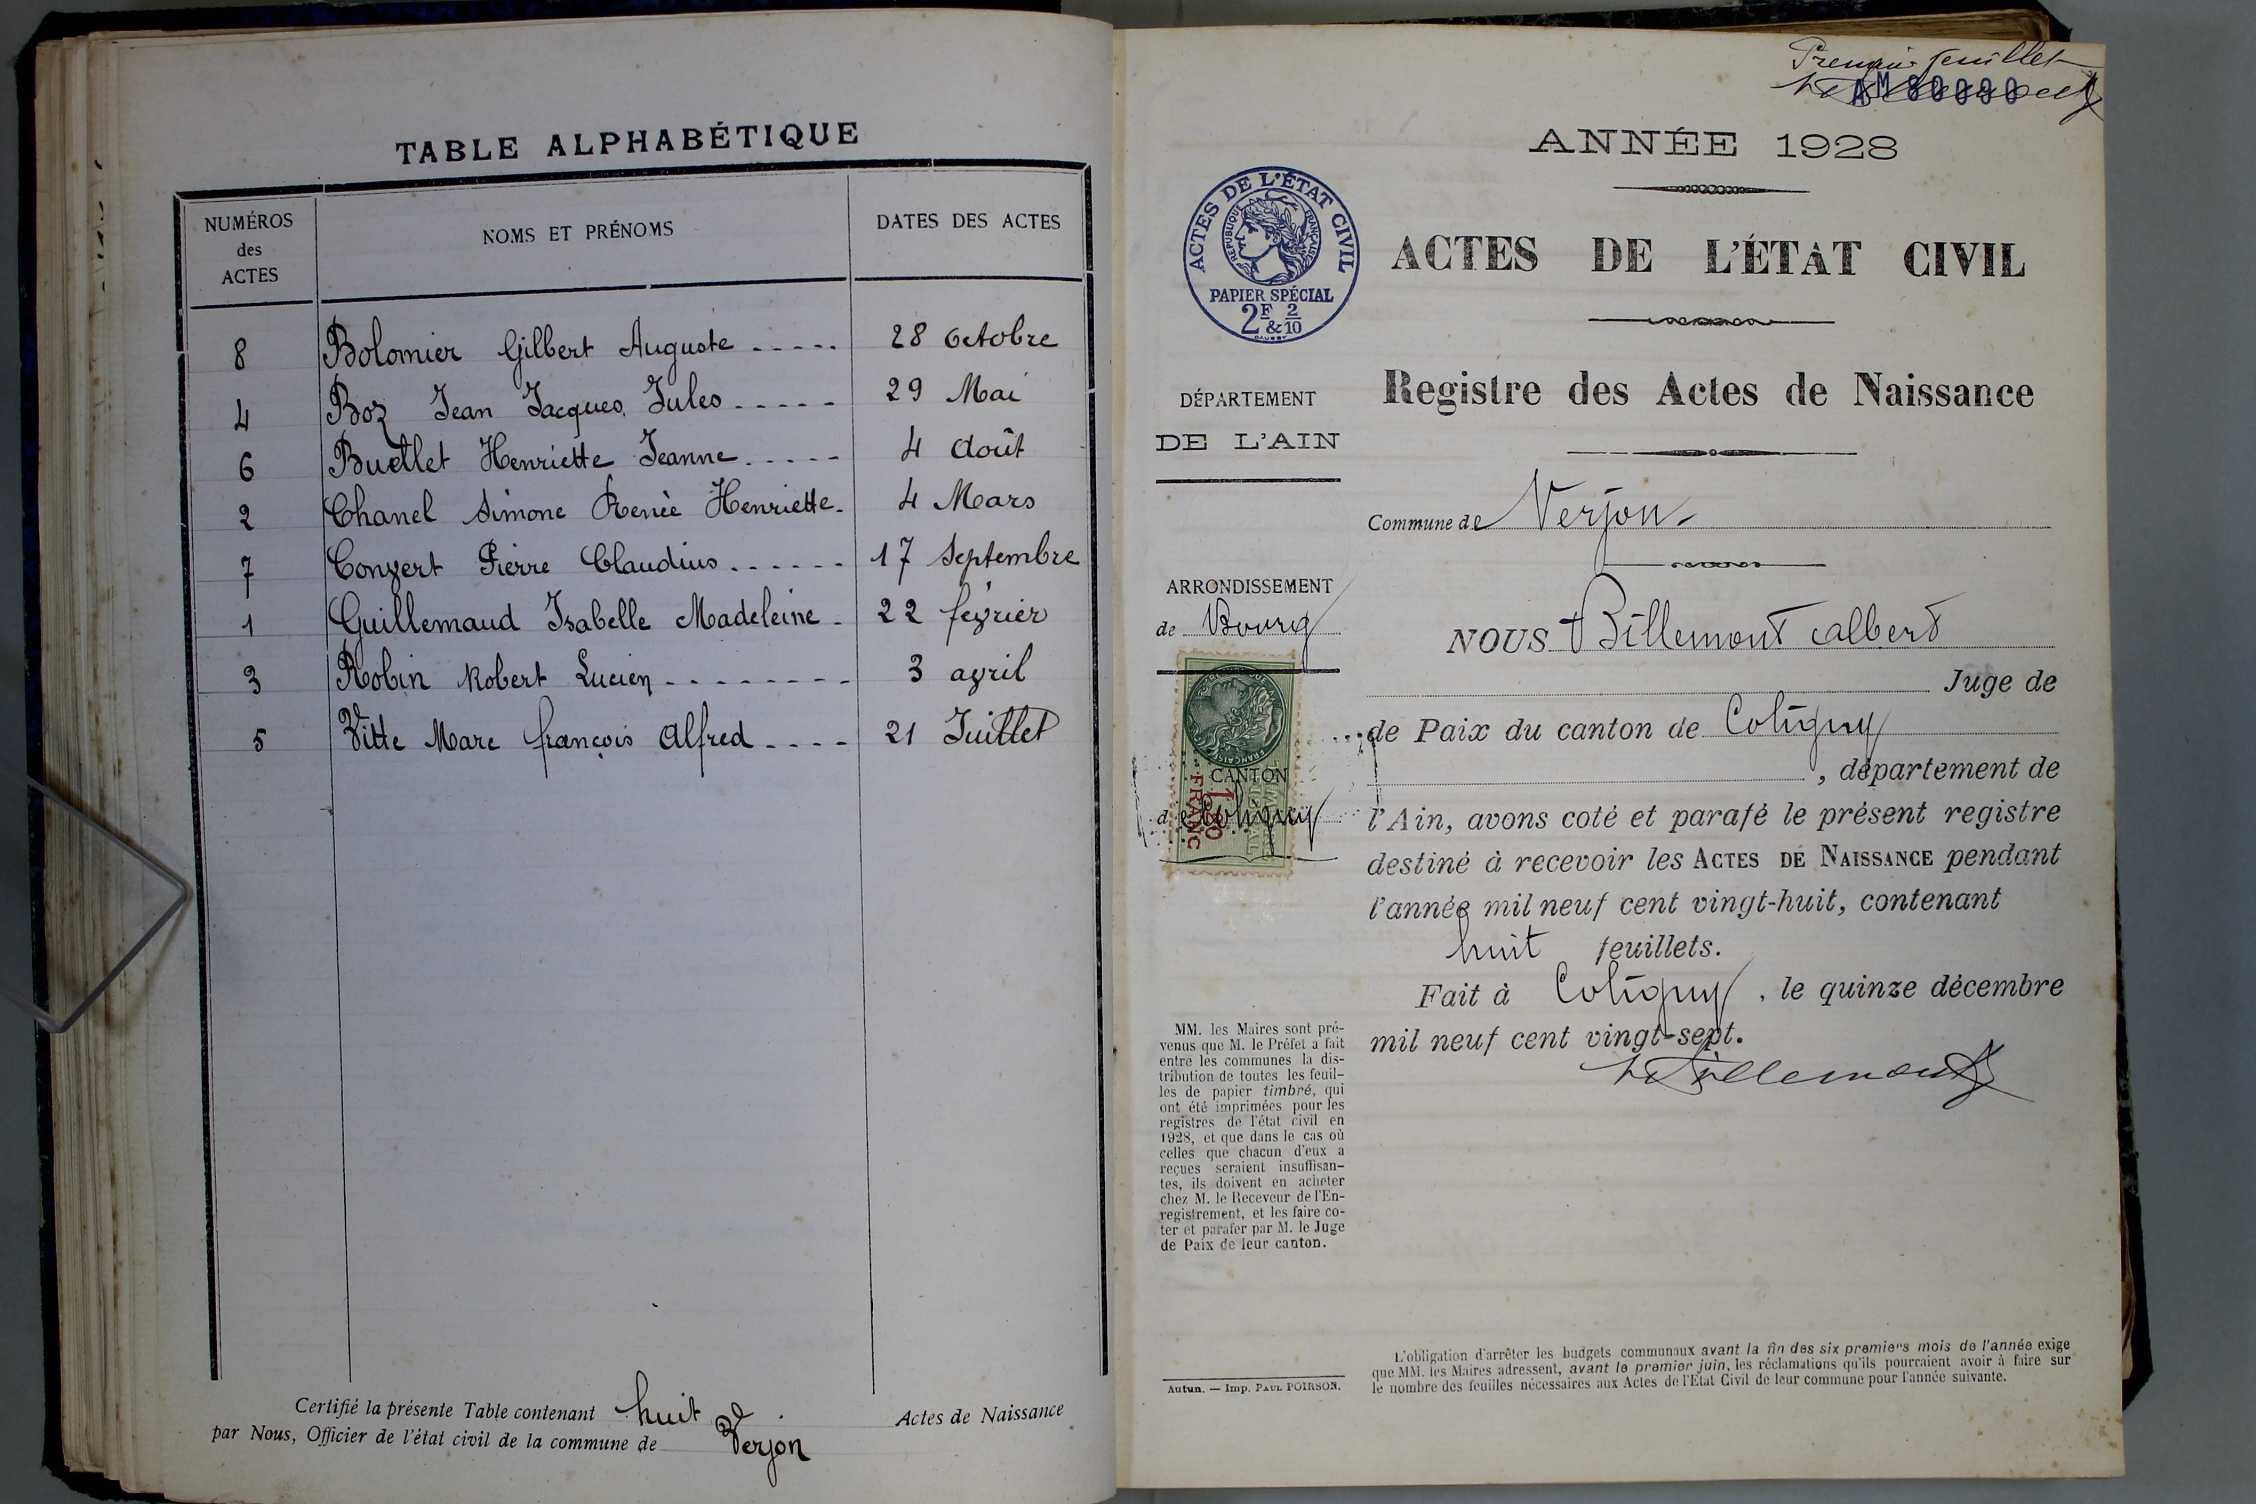 TABLE ALPHABÉTIQUE
NUMÉROS
des
ACTES
NOMS ET PRÉNOMS
DATES DES ACTES
8 Bolomier Gilbert Auguste ..... 28 Octobre
4 Boz Jean Jacques Jules ..... 29 Mai
6 Buellet Henriette Jeanne ..... 4 Août
2 Chanel Simone Renée Henriette. 4 Mars
7 Convert Pierre Claudius ...... 17 Septembre
1 Guillemaud Isabelle Madeleine . 22 février
3 Robin Robert Lucien ........ 3 avril
5 Vitte Marc françois Alfred .... 21 Juillet
Certifié la présente Table contenant huit Actes de Naissance
par Nous, Officier de l'état civil de la commune de Verjon
Premier feuillet
AM 80090
ANNÉE 1928
ACTES DE L'ÉTAT CIVIL
RÉPUBLIQUE FRANÇAISE
PAPIER SPÉCIAL
2F & 2/10
ACTES DE L'ÉTAT CIVIL
Registre des Actes de Naissance
DÉPARTEMENT
DE L'AIN
Commune de Verjon
ARRONDISSEMENT
de Bourg
CANTON
de Coligny
1.80
FRANC
NOUS Billemont Albert
Juge de
de Paix du canton de Coligny
, département de
l'Ain, avons coté et parafé le présent registre
destiné à recevoir les ACTES DE NAISSANCE pendant
l'année mil neuf cent vingt-huit, contenant
huit feuillets.
Fait à Coligny, le quinze décembre
mil neuf cent vingt-sept.
Billemont
MM. les Maires sont pré-
venus que M. le Préfet a fait
entre les communes la dis-
tribution de toutes les feuil-
les de papier timbré, qui
ont été imprimées pour les
registres de l'état civil en
1928, et que dans le cas où
celles que chacun d'eux a
reçues seraient insuffisan-
tes, ils doivent en acheter
chez M. le Receveur de l'En-
registrement, et les faire co-
ter et parafer par M. le Juge
de Paix de leur canton.
Autun. — Imp. PAUL POIRSON.
L'obligation d'arrêter les budgets communaux avant la fin des six premiers mois de l'année exige
que MM. les Maires adressent, avant le premier juin, les réclamations qu'ils pourraient avoir à faire sur
le nombre des feuilles nécessaires aux Actes de l'Etat Civil de leur commune pour l'année suivante.